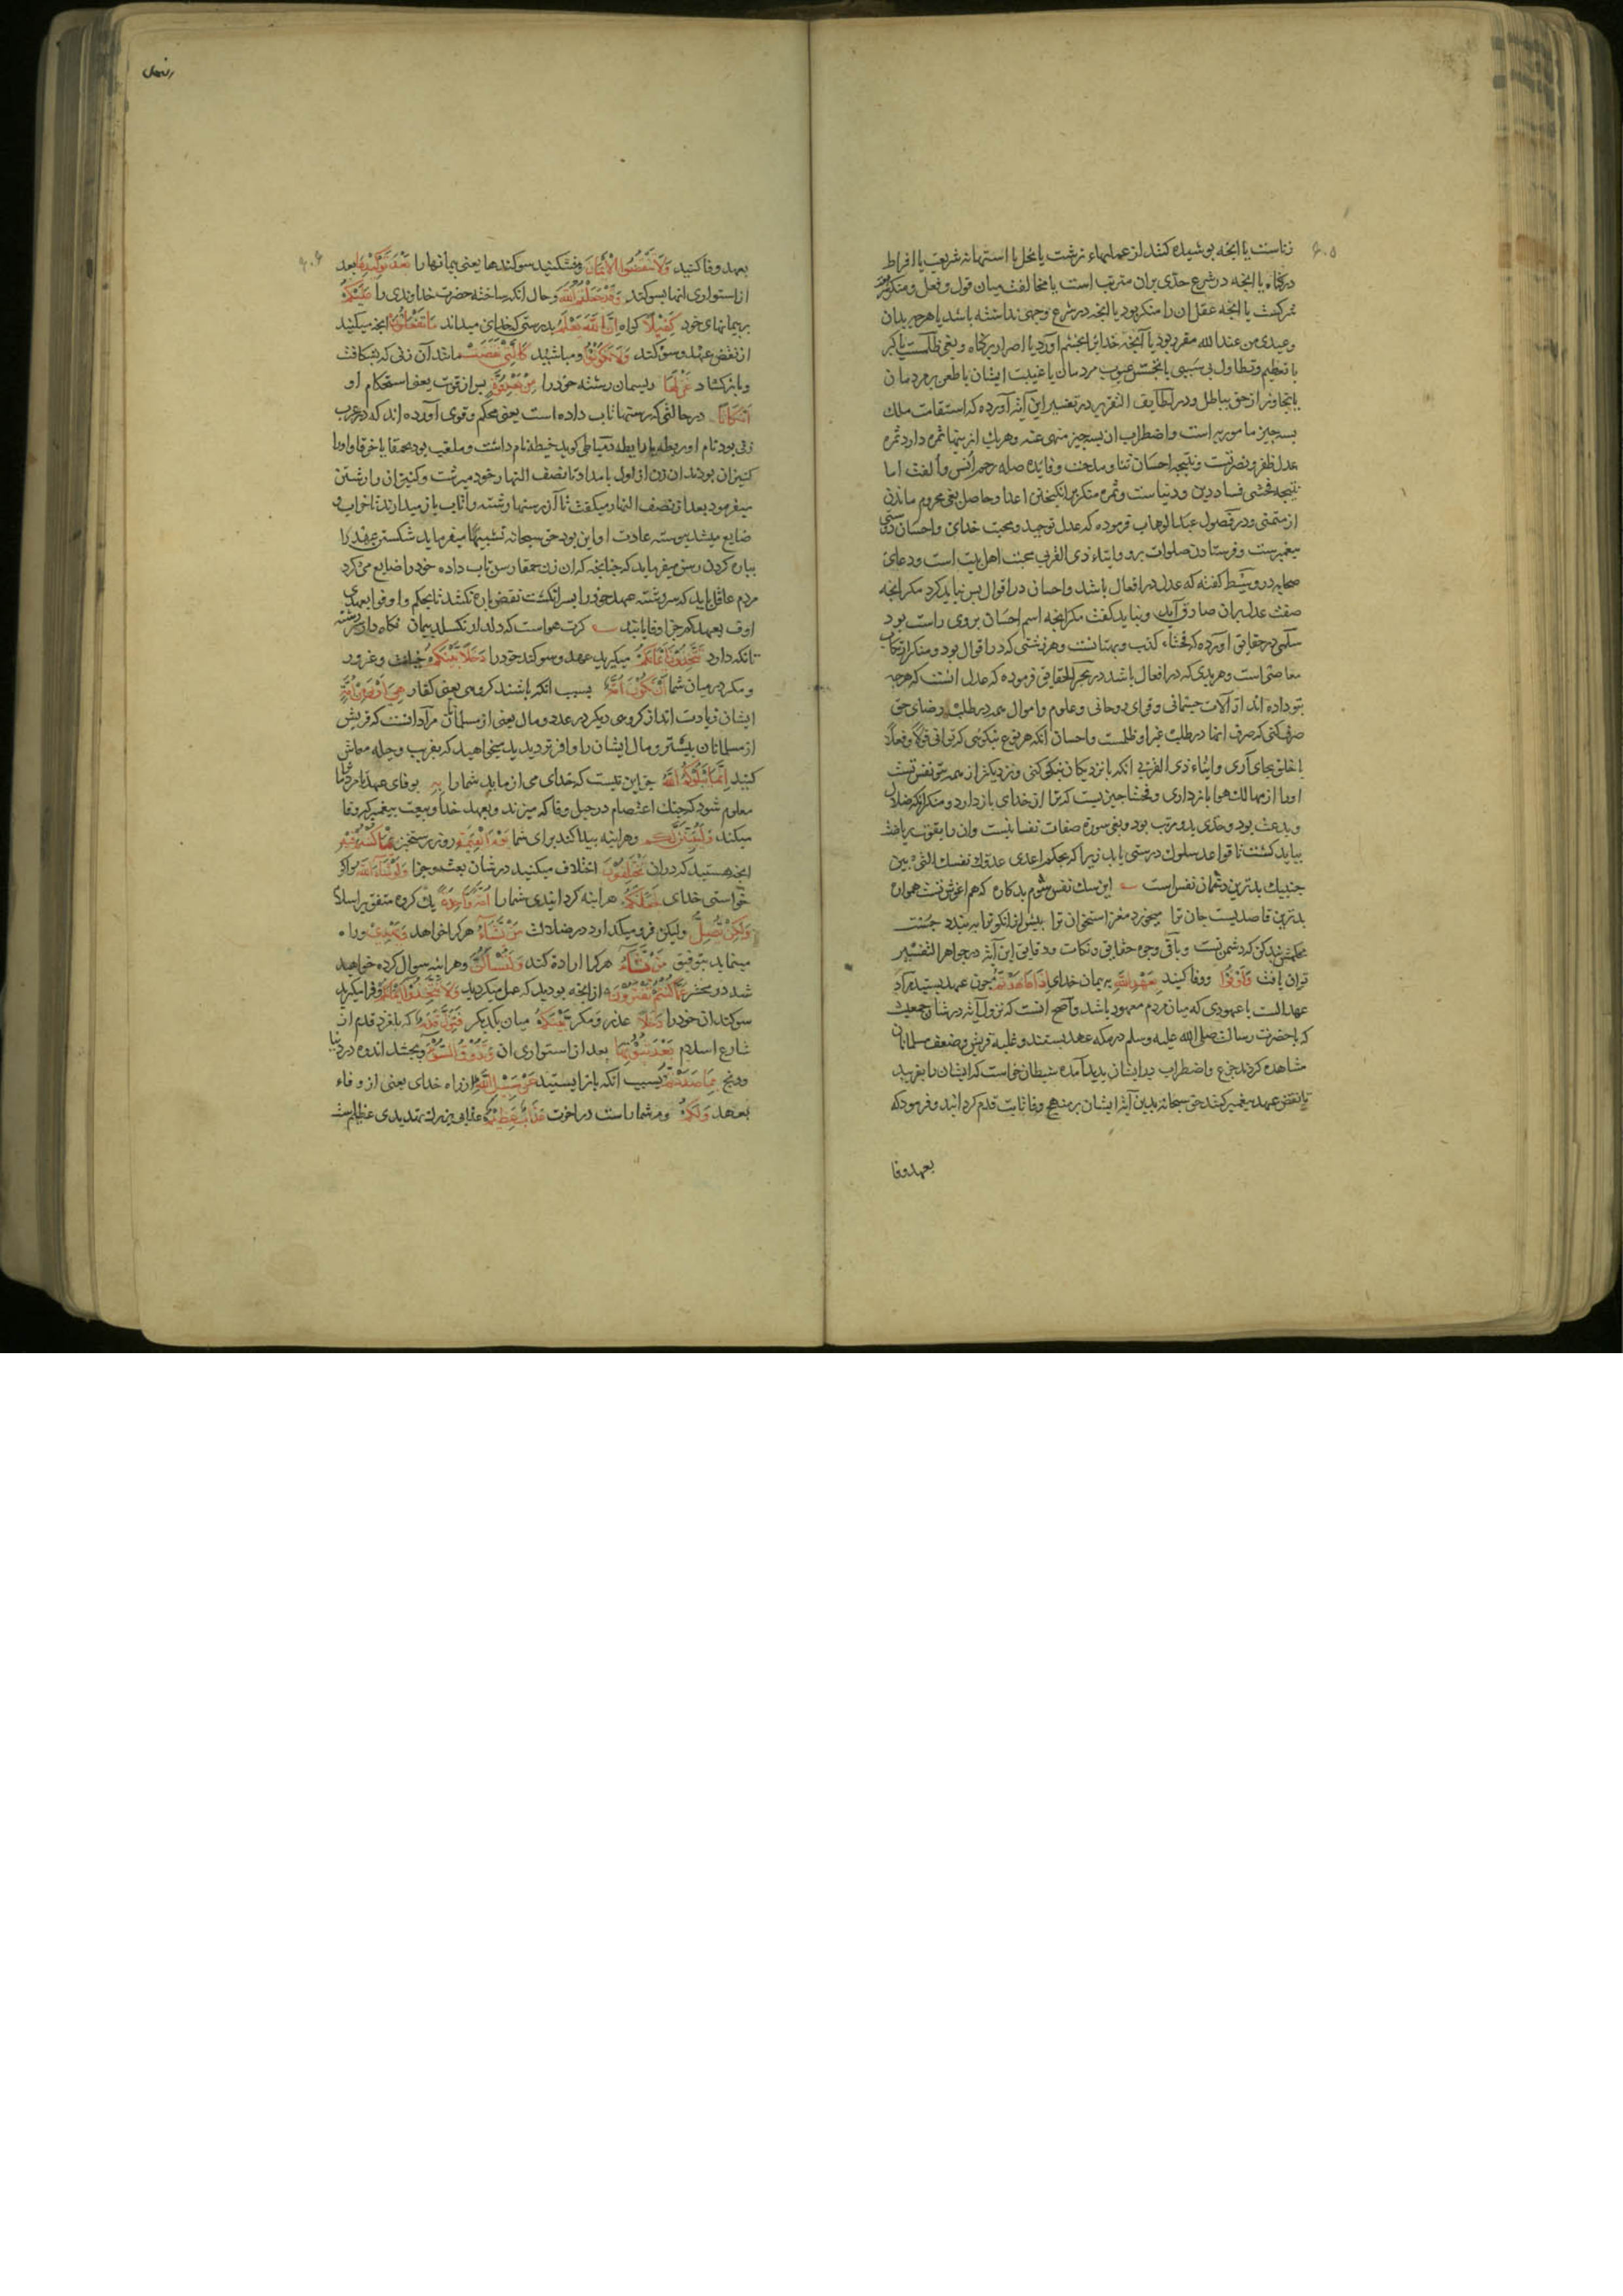 زناست یا انچه پوشیده کنند از عملهاء زشت یا بخل یا استهانه شریعت یا افراط
درکناه یا انچه در شرع حدّی بران مترتب است یا مخالفت میان قول و فعل و منکر
شرکست یا انچه عقل ان را منکر بود یا انچه در شرع وجهی نداشته باشد یا هرچه بدان
وعیدی من عند الله مقرر بود یا آنچه خدایرا بخشم آورد یا اصرار برکناه و بغی ظلمست یا کبر
یا تعظیم و تطاول بی سببی یا تجسّس عیوب مردمان یا غیبت ایشان یا طعن بر مردمان
یا تجاوز از حق بباطل و در لطایف التقریر در تفسیر این آیة آورده که استقامت ملک
بسه چیز مامور به است و اضطراب ان بسه چیز منهی عنه و هریک از ینها ثمره دارد ثمره
عدل ظفر و نصرتست و نتیجه احسان ثنا و مدحت و فایده صله رحم انس و الفت اما
نتیجه فحشی فساد دین و دنیاست و ثمره منکر برانکیختن اعدا و حاصل بغی محروم ماندن
از متمنّی و در فصول عبد الوهاب فرموده که عدل توحید و محبت خدای و احسان دوستی
پیغمبرست و فرستادن صلوات برو و ایتاء ذی القربی محبت اهل بیت است و دعای
صحابه در وسیط کفته که عدل در افعال باشد و احسان در اقوال پس نباید کرد مکر انچه
صفت عدل بران صادق آید و نباید کفت مکر انچه اسم احسان بروی راست بود
سلمی در حقایق آورده که فحشاء کذب و بهتانست و هر زشتی که در اقوال بود و منکر ارتکاب
معاصی است و هر بدی که در افعال باشد در بحر الحقایق فرموده که عدل انست که هرچه
بتو داده اند از آلات جسمانی و قوای روحانی و علوم و اموال همه در طلب رضای حق
صرف کنی که صرف انها در طلب غیر او ظلمست و احسان آنکه هر نوع نیکوئی که توانی قولا و فعلا
با خلق بجای آری و ایتاء ذی القربی انکه با نزدیکان نیکی کنی و نزدیکتر از همه بتو نفس تست
اورا از مهالک هوا باز داری و فحشا چیزیست که ترا از خدای باز دارد و منکر انکه ضلال
و بدعت بود و حدّی بدو مرتب بود و بغی سورة صفات نفسانیست وان را بقوت ریاضت
بباید کشت تا قواعد سلوک درستی یابد زیرا که بحکم اعدی عدوّک نفسک التی بین
جنبیک بدترین دشمنان نفس است این سک نفس شوم بدکاره که هم اغوش تست همواره
بدترین قاصدیست جان ترا میخورد مغز استخوان ترا پیش ازان کو ترا ببندد چست
محکمش بند کن که دشمن تست و باقی وجوه حقایق و نکات و دقایق این آیة در جواهر التفسیر
توان یافت وَاَوْفُوا و وفا کنید بِعَهْدِ اللهِ بپیمان خدای اِذَا عَاهَدْتُمْ چون عهد بستید مراد
عهد الست یا عهودی که میان مردم معهود باشد و اصح انست که نزول آیة در شان جمعیت
که با حضرت رسالت صلی الله علیه وسلم در مکه عهد بستند و غلبهٔ قریش و ضعف مسلمانان
مشاهده کردند جزع و اضطراب در ایشان پدید آمده شیطان خواست که ایشان را بفریبد
تا نقض عهد پیغمبر کنند حق سبحانه بدین آیة ایشان بر منهج وفا ثابت قدم کردانید و فرمود که
بعهد وفا
بعهد وفا کنید وَلَا تَنْقُضُوا الْاَیْمَانَ و مشکنید سوکندها یعنی پیمانها را بَعْدَ تَوْکِیدِهَا بعد
از استواری انها بسوکند وَقَدْ جَعَلْتُمُ اللهَ و حال انکه ساخته حضرت خداوندی را عَلَیْکُمْ
بر پیمانهای خود کَفِیلًا کواه اِنَّ اللهَ یَعْلَمُ بدرستی که خدای میداند مَا تَفْعَلُونَ انچه میکنید
از نقض عهد و سوکند وَلَا تَکُونُوا و مباشید کَالَّتِی نَقَضَتْ مانند آن زنی که بشکافت
و باز کشاد غَزْلَهَا ریسمان رشته خود را مِنْ بَعْدِ قُوَّةٍ پس از قوت یعنی استحکام او
اَنْکَاثًا در حالتی که رستها تاب داده است یعنی محکم و قوی آورده اند که در عرب
زنی بود نام او ربطه یا رابطه دمیاطی کوید خیطه نام داشت و ملقب بود بحمقا یا خرقا و اورا
کنیزان بودند ان زن از اول بامداد تا نصف النهار خود میرشت و کنیزان را رشتن
میفرمود بعد از نصف النهار میکفت تا آن رستها رشته را تاب باز میدادند تا خراب و
ضایع میشد پیوسته عادت او این بود حق سبحانه تشبیها میفرماید شکستن عهد را
بپاره کردن رسن میفرماید که چنانچه که ان زن حمقا رسن تاب داده خود را ضایع می کرد
مردم عاقل باید که سررشته عهد خود را بسر انکشت نقض پاره نکنند تا بحکم و اوفوا بعهدی
اوف بعهدکم جزا وفا یابند کرت هواست که دلدار نکسلد پیمان نکاه دار سر رشته
تا نکه دارد تَتَّخِذُونَ اَیْمَانَکُمْ میکیرید عهد و سوکند خود را دَخَلًا بَیْنَکُمْ خیانت و غرور
و مکر در میان شما اَنْ تَکُونَ اُمَّةٌ بسبب انکه باشند کروهی یعنی کفار هِیَ اَرْبَی مِنْ اُمَّةٍ
ایشان زیادت اند از کروهی دیکر در عدد و مال یعنی از مسلمانان مراد انست که قریش
از مسلمانان بیشتر و مال ایشان را وافرتر دیدید میخواهید که بفریب و حیله معاش
کنید اِنَّمَا یَبْلُوکُمُ اللهُ جز این نیست که خدای می ازماید شما را بِهِ بوفای عهد تا مردم را
معلوم شود که چنک اعتصام در حبل وفا که میزند و بعهد خدا و بیعت پیغمبر که وفا
میکند وَلَیُبَیِّنَنَّ لَکُمْ و هراینه پیدا کند برای شما یَوْمَ الْقِیٰمَةِ روز رستخیز مَا کُنْتُمْ فِیهِ
انچه هستید که دران تَخْتَلِفُونَ اختلاف میکنید در شان بعث و جزا وَلَوْ شَاءَ اللهُ و اکر
خواستی خدای لَجَعَلَکُمْ هراینه کردانیدی شما را اُمَّةً وَاحِدَةً یک کروه متفق بر اسلام
وَلٰکِنْ یُضِلُّ ولیکن فرو میکذارد در ضلالت مَنْ یَشَاءُ هرکرا خواهد وَیَهْدِی وراه
مینماید بتوفیق مَنْ یَشَاءُ هرکرا اراده کند وَلَتُسْاَلُنَّ و هراینه سوال کرده خواهید
شد در محشر عَمَّا کُنْتُمْ تَعْمَلُونَ از انچه بودید که عمل میکردید وَلَا تَتَّخِذُوا اَیْمَانَکُمْ و فرا مکیرید
سوکندان خود را دَخَلًا عذر و مکر بَیْنَکُمْ میان یکدیکر فَتَزِلَّ قَدَمٌ که بلغزد قدم از
شارع اسلام بَعْدَ ثُبُوتِهَا بعد از استواری ان وَتَذُوقُوا السُّوْءَ و بچشید اندوه در دنیا
و رنج بِمَا صَدَدْتُمْ بسبب آنکه باز ایستید عَنْ سَبِیلِ اللهِ از راه خدای یعنی از وفاء
بعهد وَلَکُمْ و مر شما راست در اخرت عَذَابٌ عَظِیمٌ عذابی بزرک تهدیدی عظیم ست